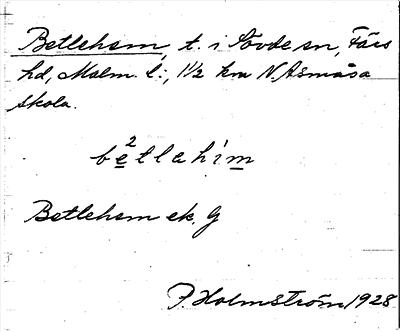 Betlehem, t. i Sövde sn, Färs
hd, Malm. l:, 1 1/2 km N Åsmåsa
skola.
be²tlehim
Betlehem ek. G
P. Holmström 1928